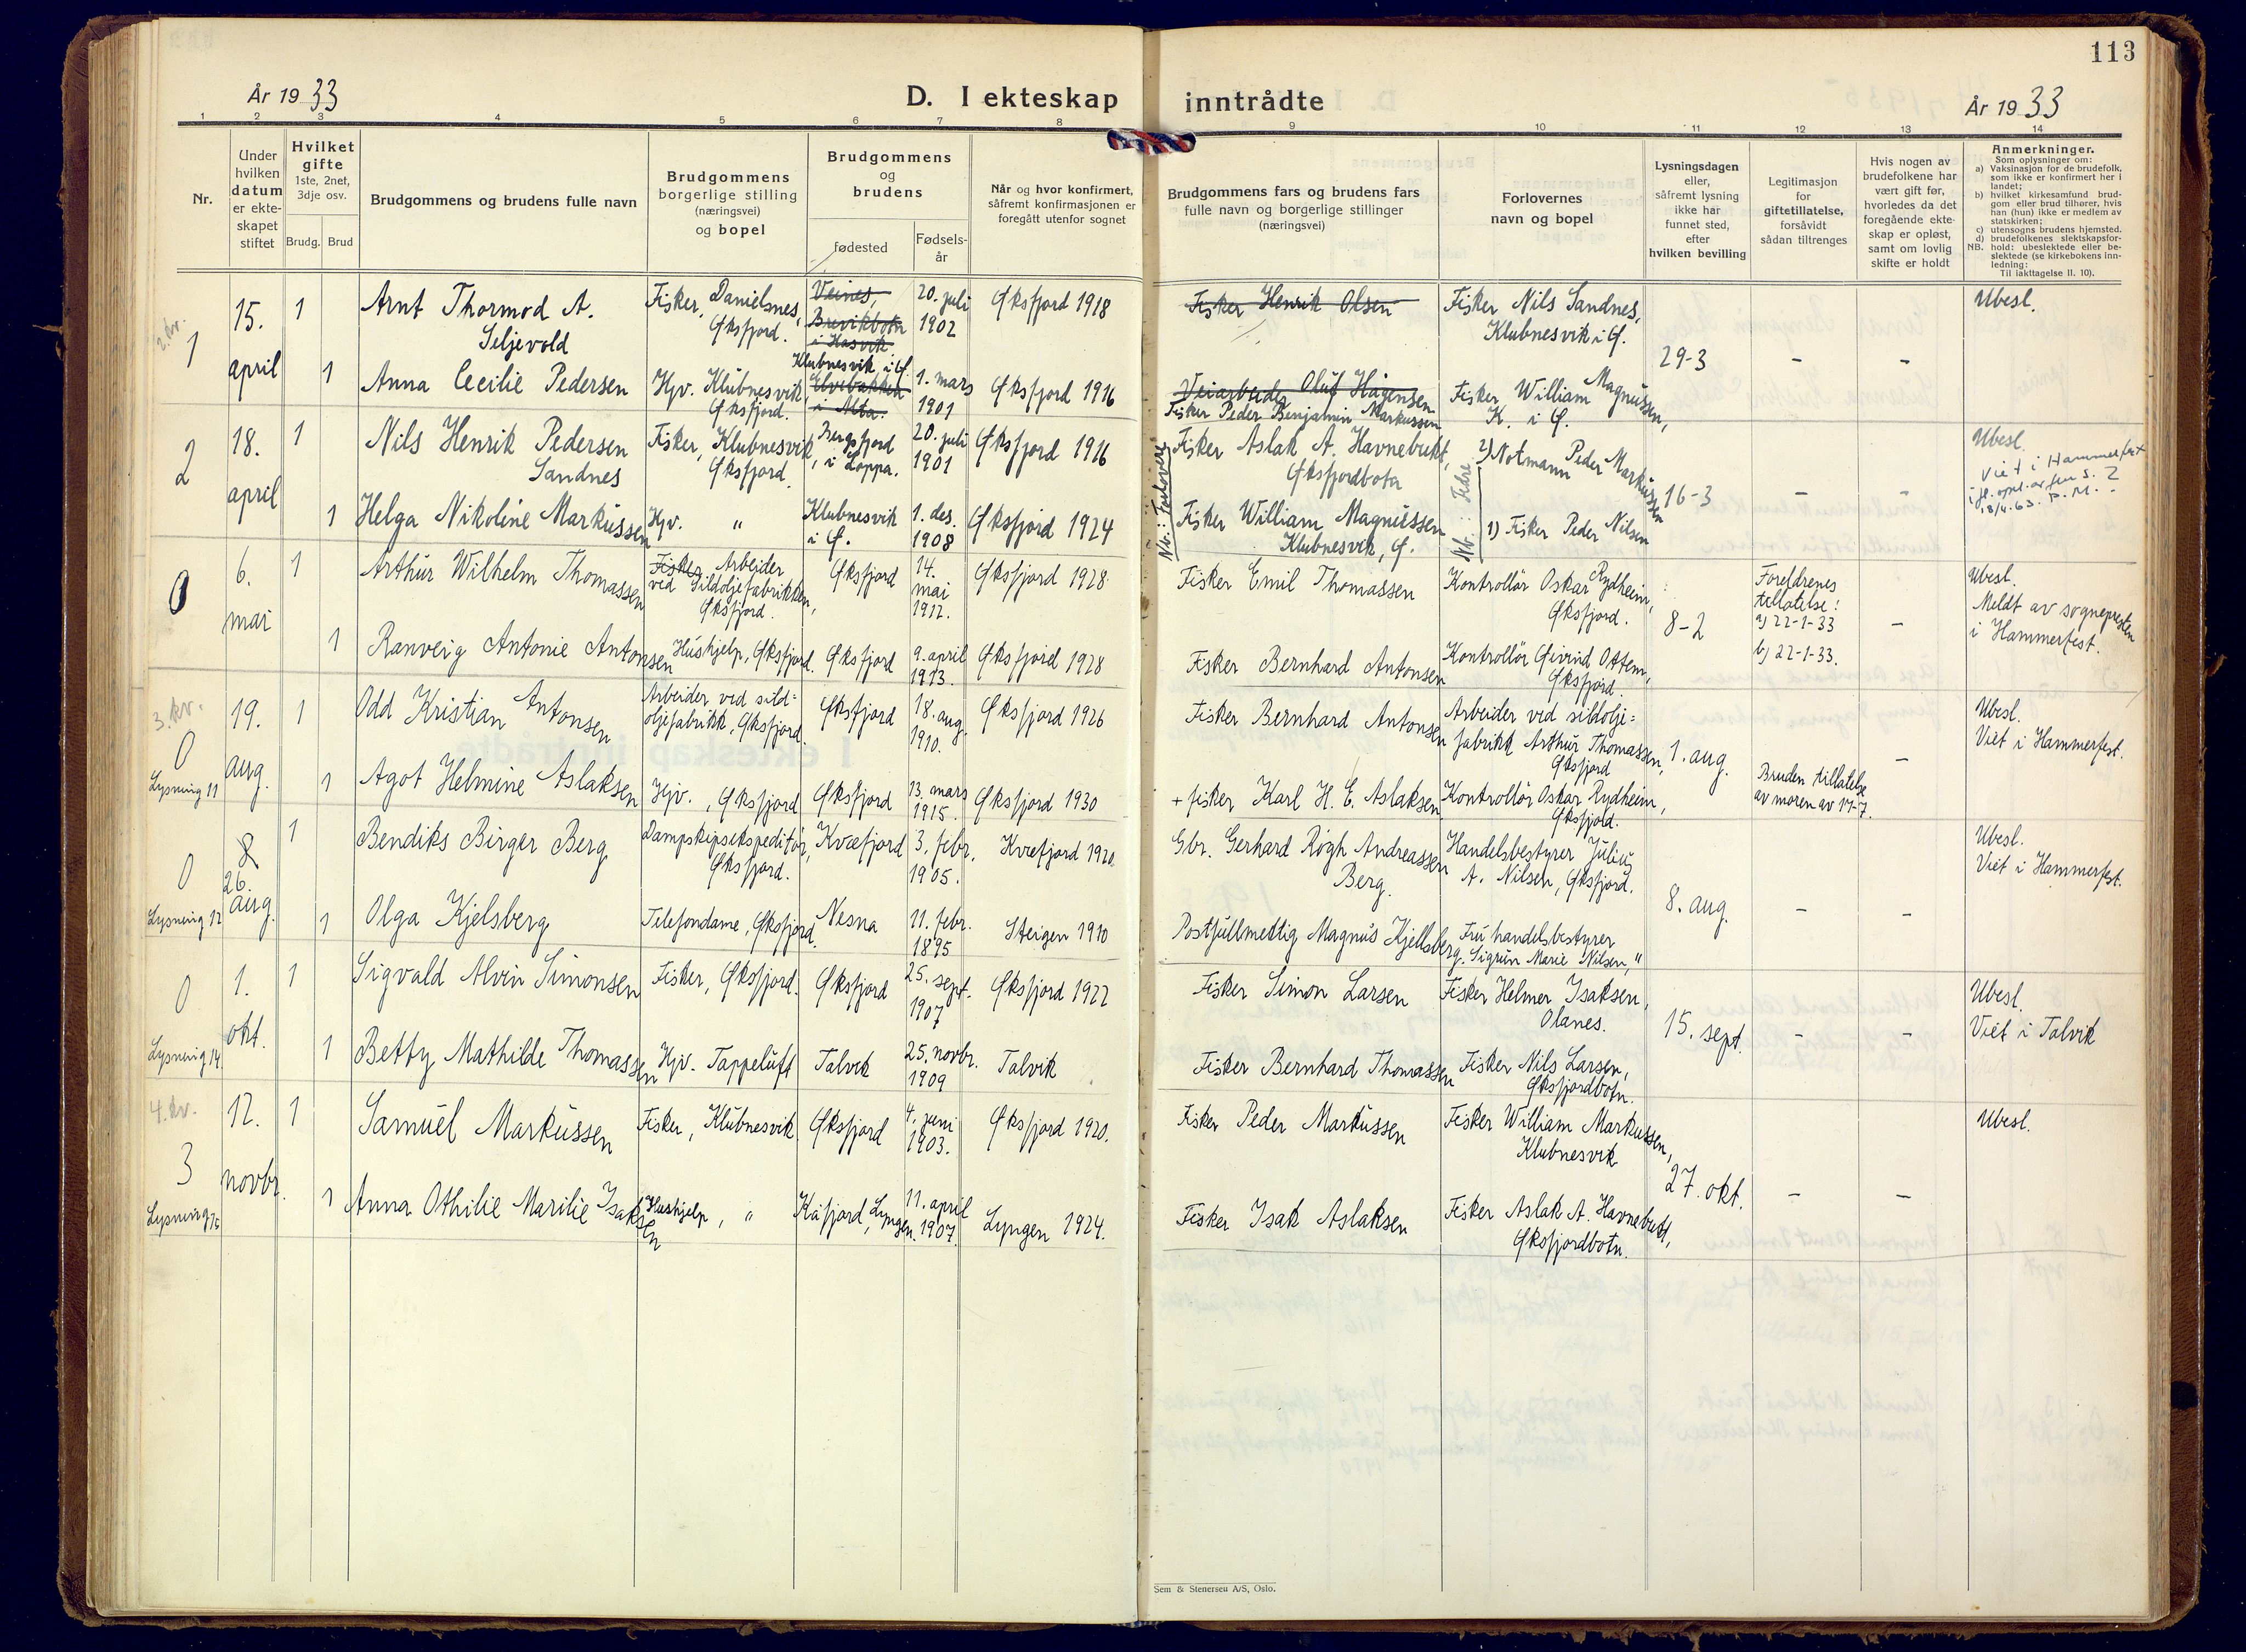 113
År 1933
D. I ekteskap inntrådte
År 1933
1 2 3 4 5 6 7 8 9 10 11 12 13 14
Nr.
Under
hvilken
datum
er ekte-
skapet
stiftet
Hvilket
gifte
1ste, 2net,
3dje osv.
Brudg. Brud
Brudgommens og brudens fulle navn
Brudgommens
borgerlige stilling
(næringsvei)
og bopel
Brudgommens
og
brudens
fødested
Fødsels-
år
Når og hvor konfirmert,
såfremt konfirmasjonen er
foregått utenfor sognet
Brudgommens fars og brudens fars
fulle navn og borgerlige stillinger
(næringsvei)
Forlovernes
navn og bopel
Lysningsdagen
eller,
såfremt lysning
ikke har
funnet sted,
efter
hvilken bevilling
Legitimasjon
for
giftetillatelse,
forsåvidt
sådan tiltrenges
Hvis nogen av
brudefolkene har
vært gift før,
hvorledes da det
foregående ekte-
skap er opløst,
samt om lovlig
skifte er holdt
Anmerkninger.
Som oplysninger om:
a) Vaksinasjon for de brudefolk,
som ikke er konfirmert her i
landet;
b) hvilket kirkesamfund brud-
gom eller brud tilhører, hvis
han (hun) ikke er medlem av
statskirken;
c) utensogns brudens hjemsted.
d) brudefolkenes slektskapsfor-
NB. hold: ubeslektede eller be-
slektede (se kirkebokens inn-
ledning:
Til iakttagelse II. 10).
2. kv.
1
15.
april
1
Arnt Thormod A.
Seljevold
Fisker, Danielsnes,
Øksfjord.
Veines,
Brevikbotn
i Hasvik.
20. juli
1902
Øksfjord 1918
Fisker Henrik Olsen
Fisker Nils Sandnes,
Klubnesvik i Ø.
29-3
-
-
Ubesl.
1
Anna Cecilie Pedersen
Hjv. Klubnesvik,
Øksfjord.
Klubnesvik i Ø.
Elvebakken
i Alta.
1. mars
1901
Øksfjord 1916
Veiarbeider Oluf Hågensen
Fisker Peder Benjamin Markussen
Fisker William Magnussen,
K. i Ø.
2
18.
april
1
Nils Henrik Pedersen
Sandnes
Fisker, Klubnesvik,
Øksfjord.
Bergsfjord
i Loppa.
20. juli
1901
Øksfjord 1916
Nb.: Forlovere
Fisker Aslak A. Havnebukt,
Øksfjordbotn
Nb.: Fedre
2) Notmann Peder Markussen
16-3
-
-
Ubesl.
Viet i Hammerfest
18/4.63. P.M.
1
Helga Nikoline Markussen
Hjv. "
Klubnesvik
i Ø.
1. des.
1908
Øksfjord 1924
Fisker William Magnussen
Klubnesvik, Ø.
1) Fisker Peder Nilsen
0
6.
mai
1
Arthur Wilhelm Thomassen
Fisker Arbeider
ved Sildoljefabrikken,
Øksfjord.
Øksfjord
14.
mai
1912.
Øksfjord 1928
Fisker Emil Thomassen
Kontrollør Oskar Rydheim,
Øksfjord.
8-2
Foreldrenes
tillatelse:
a) 22-1-33
b) 22-1-33.
-
Ubesl.
Meldt av sognepresten
i Hammerfest.
1
Ranveig Antonie Antonsen
Hushjelp, Øksfjord.
Øksfjord
9. april
1913.
Øksfjord 1928
Fisker Bernhard Antonsen
Kontrollør Øivind Ottem,
Øksfjord.
3. kv.
0
Lysning 11
19.
aug.
1
Odd Kristian Antonsen
Arbeider ved sild-
oljefabrikk, Øksfjord.
Øksfjord
18. aug.
1910.
Øksfjord 1926
Fisker Bernhard Antonsen
Arbeider ved sildolje-
fabrikk Arthur Thomassen,
Øksfjord
1. aug.
-
Ubesl.
Viet i Hammerfest.
1
Agot Helmine Aslaksen
Hjv., Øksfjord
Øksfjord
13. mars
1915.
Øksfjord 1930
+ fisker Karl H. E. Aslaksen
Kontrollør Oskar Rydheim,
Øksfjord.
Bruden tillatelse
av moren av 17-7.
0
Lysning 12
8
26.
aug.
1
Bendiks Birger Berg
Dampskipsekspeditør,
Øksfjord.
Kvæfjord
3. febr.
1905.
Kvæfjord 1920
Gbr. Gerhard Røgh Andreassen
Berg.
Handelsbestyrer Julius
A. Nilsen, Øksfjord.
8. aug.
-
-
Ubesl.
Viet i Hammerfest.
1
Olga Kjelsberg
Telefondame, Øksfjord.
Nesna
11. febr.
1895
Steigen 1910
Postfullmektig Magnus Kjellsberg.
Fru handelsbestyrer
Sigrun Marie Nilsen, "
0
Lysning 14
1.
okt.
1
Sigvald Alvin Simonsen
Fisker, Øksfjord.
Øksfjord
25. sept.
1907
Øksfjord 1922
Fisker Simon Larsen
Fisker Helmer Isaksen,
Olanes.
15. sept.
-
-
Ubesl.
Viet i Talvik
1
Betty Mathilde Thomassen
Hjv. Tappeluft
Talvik
25. novbr.
1909
Talvik
Fisker Bernhard Thomassen
Fisker Nils Larsen,
Øksfjordbotn.
4. kv.
3
Lysning 15
12.
novbr.
1
Samuel Markussen
Fisker, Klubnesvik
Øksfjord
4. juni
1903.
Øksfjord 1920.
Fisker Peder Markussen
Fisker William Markussen,
Klubnesvik
27. okt.
-
-
Ubesl.
1
Anna Othilie Marilie Isaksen
Hushjelp, "
Kåfjord, Lyngen.
11. april
1907.
Lyngen 1924.
Fisker Isak Aslaksen
Fisker Aslak A. Havnebukt,
Øksfjordbotn.
Sem & Stenersen A/S, Oslo.